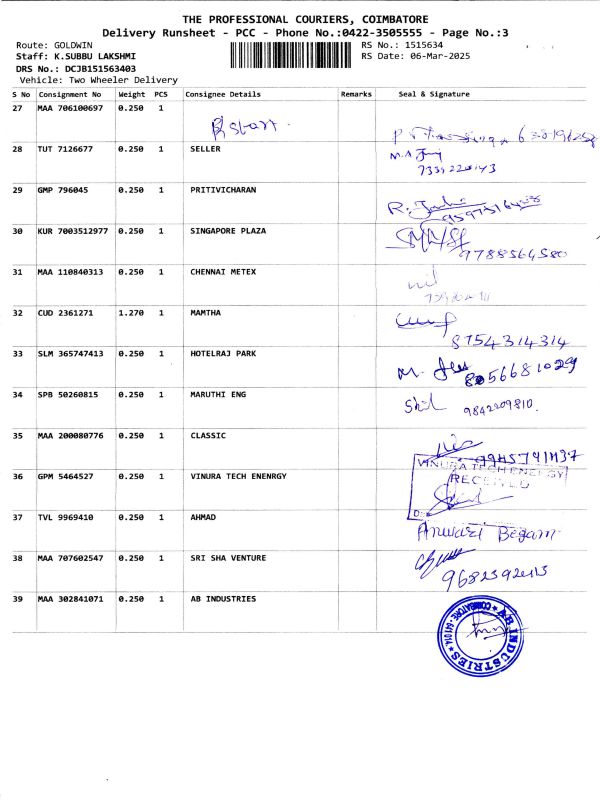 THE PROFESSIONAL COURIERS, COIMBATORE
Delivery Runsheet - PCC - Phone No.:0422-3505555 - Page No.:3
Route: GOLDWIN RS No.: 1515634
Staff: K.SUBBU LAKSHMI RS Date: 06-Mar-2025
DRS No.: DCJB151563403
Vehicle: Two Wheeler Delivery
S No Consignment No Weight PCS Consignee Details Remarks Seal & Signature
27 MAA 706100697 0.250 1
28 TUT 7126677 0.250 1 SELLER
29 GMP 796045 0.250 1 PRITIVICHARAN
30 KUR 7003512977 0.250 1 SINGAPORE PLAZA
9788564580
31 MAA 110840313 0.250 1 CHENNAI METEX
32 CUD 2361271 1.270 1 MAMTHA
8754314314
33 SLM 365747413 0.250 1 HOTELRAJ PARK
8056681029
34 SPB 50260815 0.250 1 MARUTHI ENG
9842209810.
35 MAA 200080776 0.250 1 CLASSIC
36 GPM 5464527 0.250 1 VINURA TECH ENENRGY
VINURA TECH ENERGY
RECEIVED
37 TVL 9969410 0.250 1 AHMAD
Begam
38 MAA 707602547 0.250 1 SRI SHA VENTURE
39 MAA 302841071 0.250 1 AB INDUSTRIES
AB INDUSTRIES
COIMBATORE - 641014